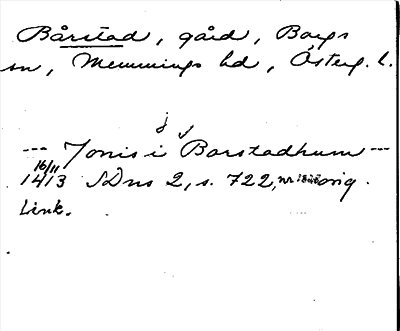 Bårstad, gård, Borgs
sn, Memmings hd, Österg. l.
j
--- Jonis i Barstadhum ---
16/11
1413 SDns 2, s. 722, nr orig.
Link.